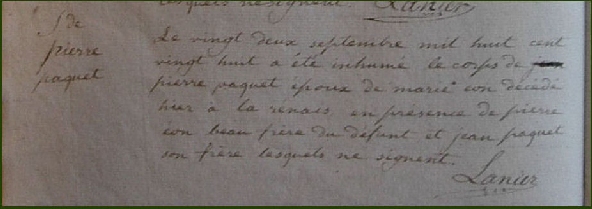 lesquels ne signent Lanier
S de
pierre
paquet
Le vingt deux septembre mil huit cent
vingt huit a été inhumé le corps de
pierre paquet époux de marie con décédé
hier a la renais en présence de pierre
con beau frère du défunt et jean paquet
son frère lesquels ne signent.
Lanier